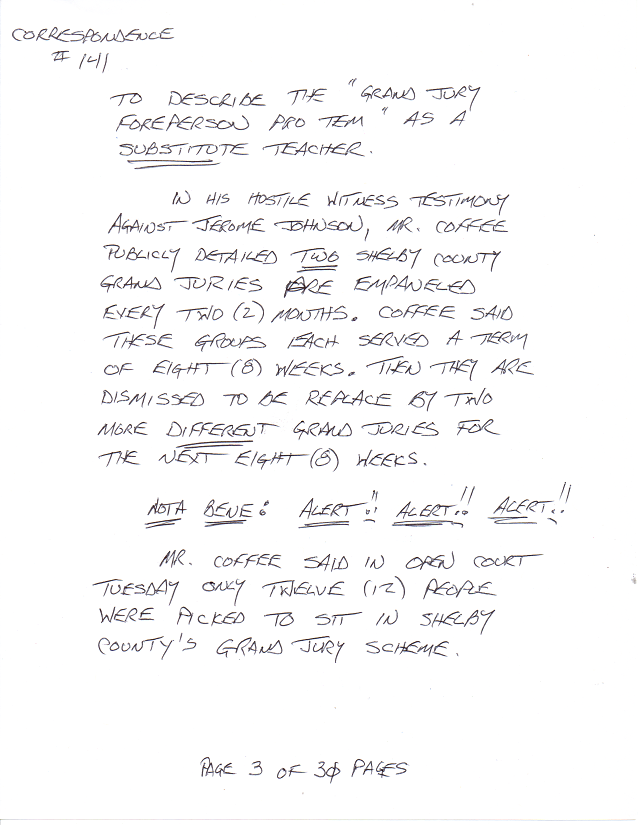 CORRESPONDENCE
# 141
TO DESCRIBE THE "GRAND JURY
FOREPERSON PRO TEM" AS A
SUBSTITUTE TEACHER.
IN HIS HOSTILE WITNESS TESTIMONY
AGAINST JEROME JOHNSON, MR. COFFEE
PUBLICLY DETAILED TWO SHELBY COUNTY
GRAND JURIES ARE EMPANELED
EVERY TWO (2) MONTHS. COFFEE SAID
THESE GROUPS EACH SERVED A TERM
OF EIGHT (8) WEEKS. THEN THEY ARE
DISMISSED TO BE REPLACE BY TWO
MORE DIFFERENT GRAND JURIES FOR
THE NEXT EIGHT (8) WEEKS.
NOTA BENE: ALERT!! ALERT!! ALERT!!
MR. COFFEE SAID IN OPEN COURT
TUESDAY ONLY TWELVE (12) PEOPLE
WERE PICKED TO SIT IN SHELBY
COUNTY'S GRAND JURY SCHEME.
PAGE 3 OF 30 PAGES